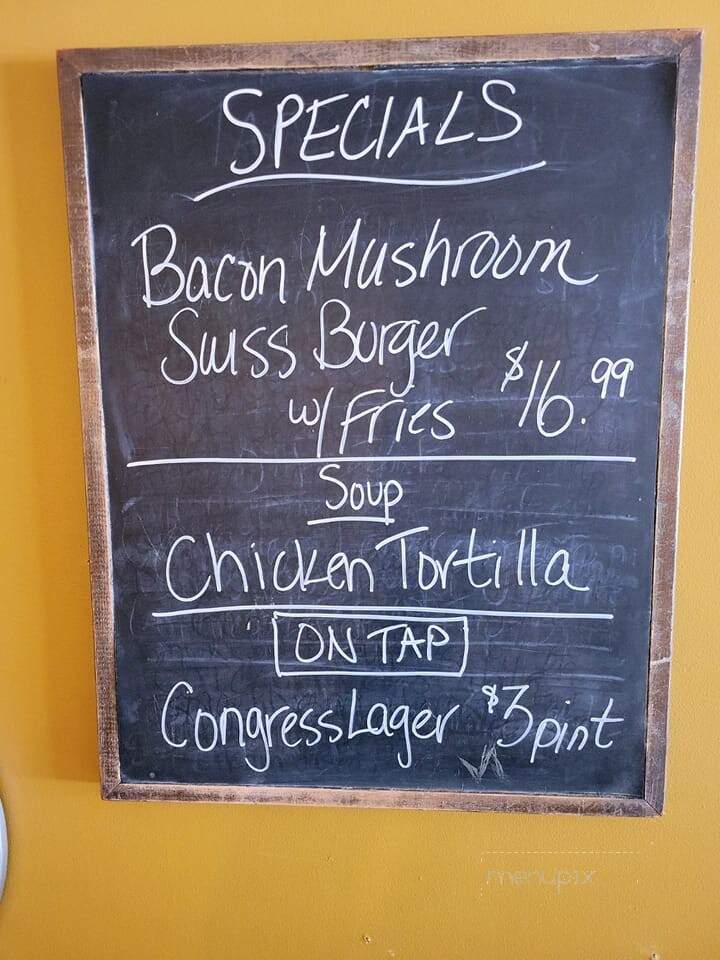 SPECIALS
Bacon Mushroom
Swiss Burger
w/ Fries $16.99
Soup
Chicken Tortilla
ON TAP
Congress Lager $3 pint
menupix